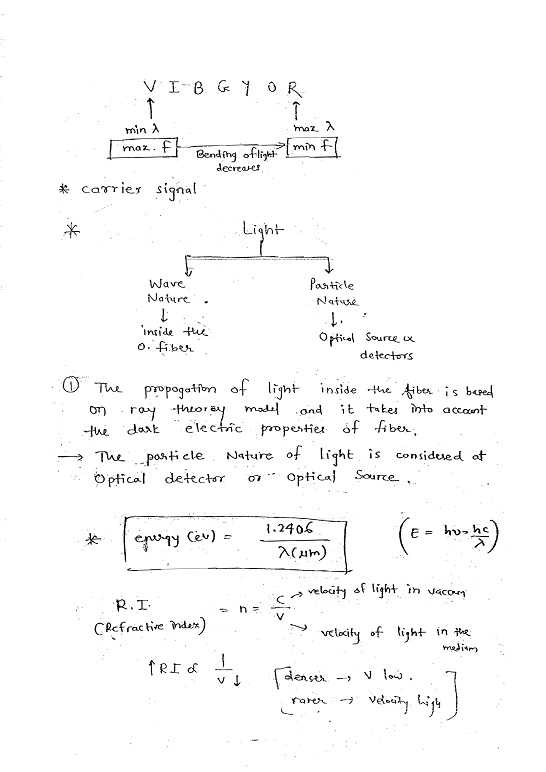 V I B G Y O R
min λ max λ
max. f Bending of light decreases min f
* carrier signal
* Light
Wave Nature . Particle Nature
inside the O. fiber Optical Source & detectors
① The propogation of light inside the fiber is based
on ray theoray model and it takes into account
the dark electric properties of fiber.
→ The particle Nature of light is considered at
Optical detector or Optical Source.
* energy (ev) = 1.2406 / λ(μm) (E = hν = hc/λ)
R.I. (Refractive index) = n = C/V
→ velocity of light in vaccum
→ velocity of light in the medium
↑ RI ∝ 1/V ↓
[denser → V low.
rarer → velocity high]